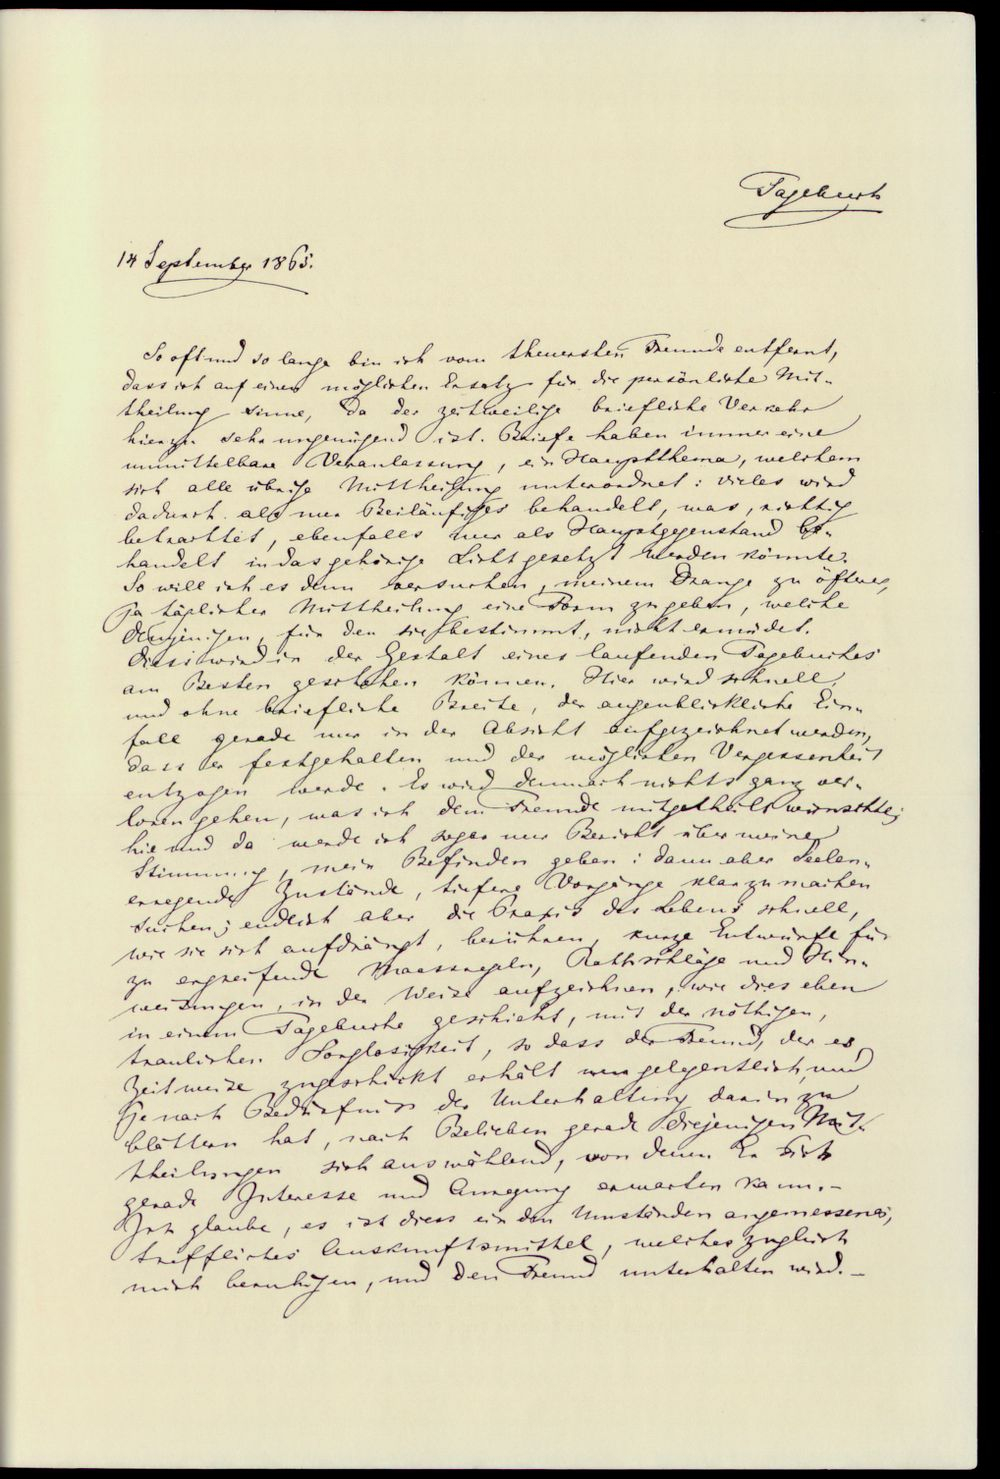 Tagebuch
14 September 1865.
So oft und so lange bin ich vom theuersten Freunde entfernt,
dass ich auf einen möglichen Ersatz für die persönliche Mit-
theilung sinne, da der zeitweilige briefliche Verkehr
hierzu sehr ungenügend ist. Briefe haben immer eine
unmittelbare Veranlassung, ein Hauptthema, welchem
sich alle übrige Mittheilung unterordnet: vieles wird
dadurch als nur Beiläufiges behandelt, was, richtig
betrachtet, ebenfalls nur als Hauptgegenstand be-
handelt in das gehörige Licht gesetzt werden könnte.
So will ich es denn versuchen, meinem Drange zu öftrer,
ja täglicher Mittheilung eine Form zu geben, welche
denjenigen, für den sie bestimmt, nicht ermüdet.
Diess wird in der Gestalt eines laufenden Tagebuches
am Besten geschehen können. Hier wird schnell,
und ohne briefliche Breite, der augenblickliche Ein-
fall gerade nur in der Absicht aufgezeichnet werden,
dass er festgehalten und der möglichen Vergessenheit
entzogen werde. Es wird demnach nichts ganz ver-
loren gehen, was ich dem Freunde mitgetheilt wünschte;
hie und da werde ich sogar nur Bericht über meine
Stimmung, mein Befinden geben: dann aber Seelen-
erregende Zustände, tiefere Vorgänge klar zu machen
suchen; endlich aber die Praxis des Lebens schnell,
wie sie sich aufdrängt, berühren, kurze Entwürfe für
zu ergreifende Maassregeln, Rathschläge und Hin-
weisungen, in der Weise aufzeichnen, wie dies eben
in einem Tagebuche geschieht, mit der nöthigen,
traulichen Sorglosigkeit, so dass der Freund, der es
Zeitweise zugeschickt erhält nur gelegentlich, und
je nach Bedürfniss der Unterhaltung darin zu
blättern hat, nach Belieben gerade diejenigen Mit-
theilungen sich auswählend, von denen Er sich
gerade Interesse und Anregung erwarten kann. –
Ich glaube, es ist diess ein den Umständen angemessenes,
treffliches Auskunftsmittel, welches zugleich
mich beruhigen, und den Freund unterhalten wird. –